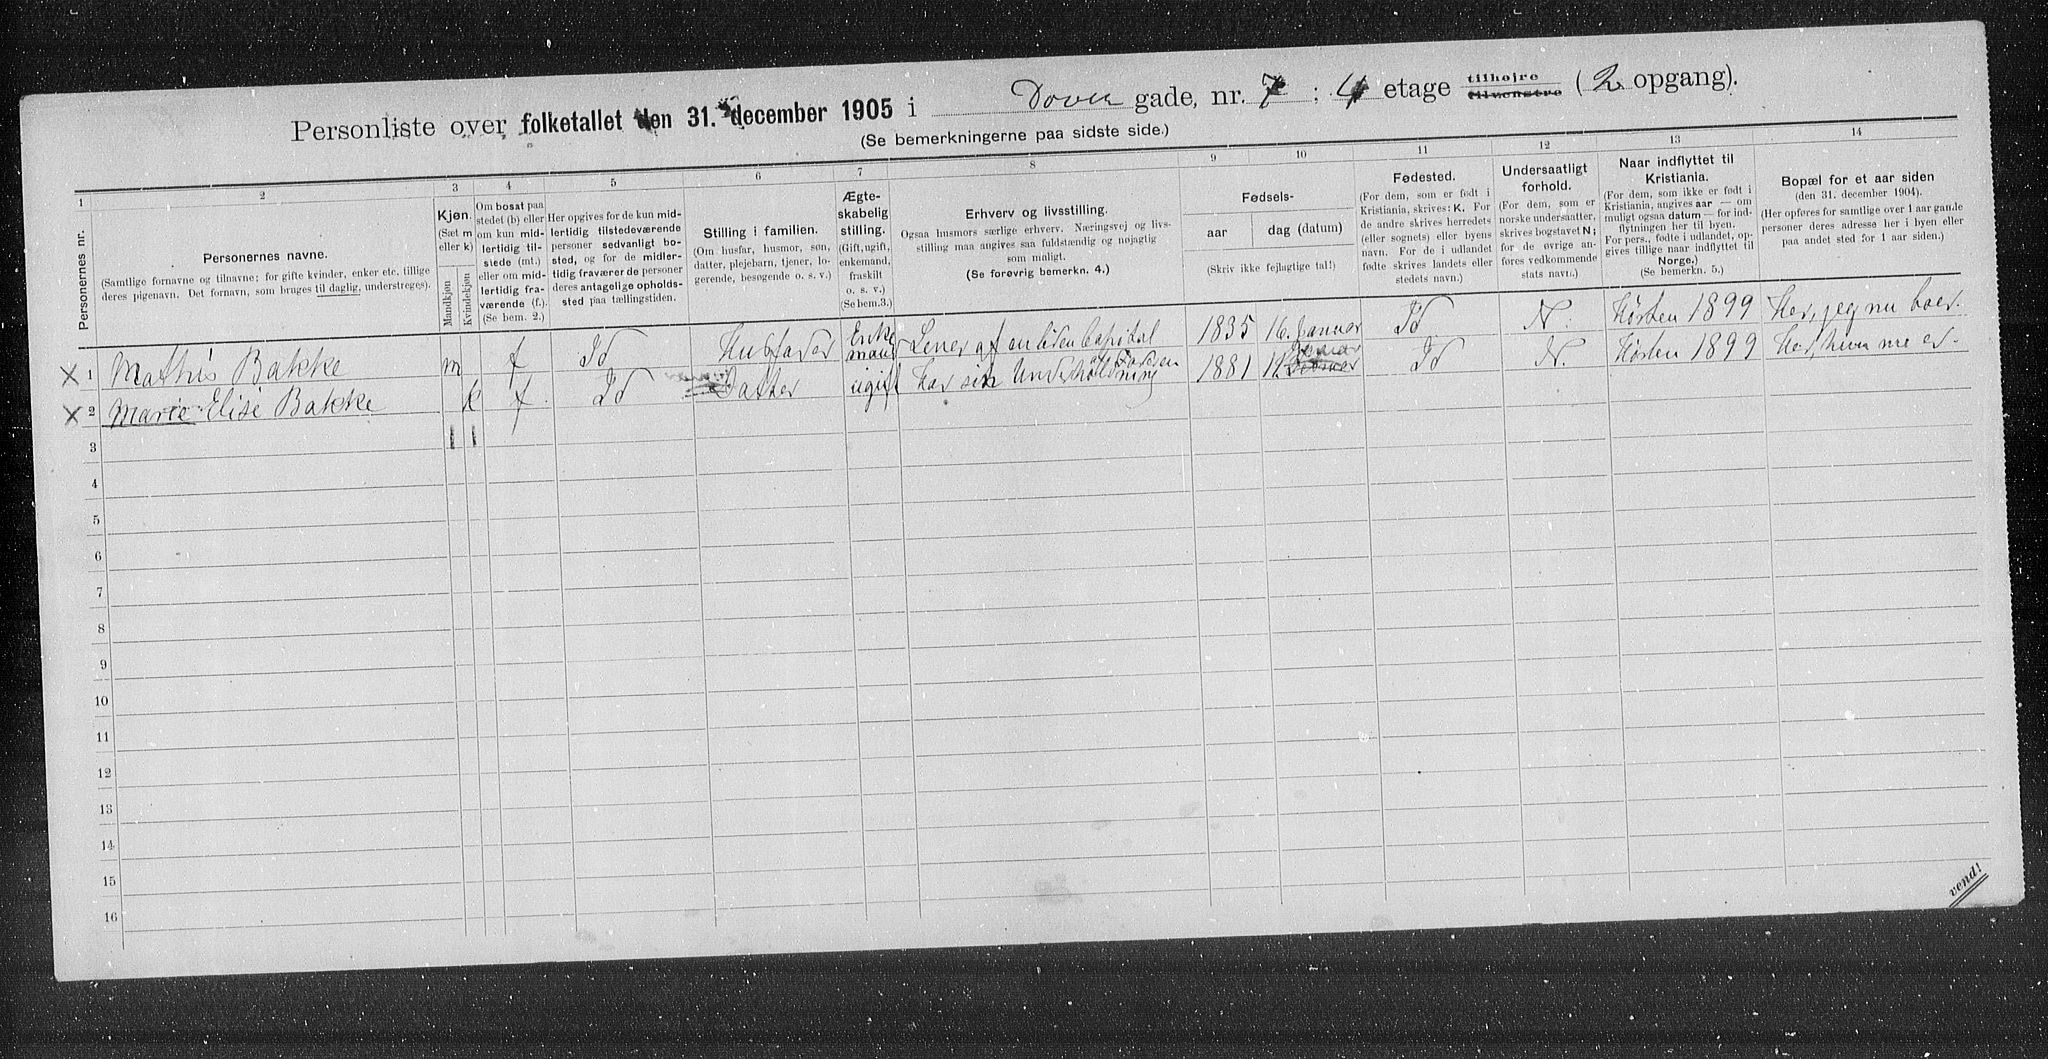 Personliste over folketallet den 31. december 1905 i Dovre gade, nr. 7 ; 4 etage tilhøjre tilvenstre (2 opgang).
(Se bemerkningerne paa sidste side.)
1 2 3 4 5 6 7 8 9 10 11 12 13 14
Personernes nr.
Personernes navne.
(Samtlige fornavne og tilnavne; for gifte kvinder, enker etc. tillige
deres pigenavn. Det fornavn, som bruges til daglig, understreges).
Kjøn.
(Sæt m
eller k)
Mandkjøn
Kvindekjøn
Om bosat paa
stedet (b) eller
om kun mid-
lertidig til-
stede (mt.)
eller om mid-
lertidig fra-
værende (f.).
(Se bem. 2.)
Her opgives for de kun mid-
lertidig tilstedeværende
personer sedvanlig bo-
sted, og for de midler-
tidig fraværende personer
deres antagelige opholds-
sted paa tællingstiden.
Stilling i familien.
(Om husfar, husmor, søn,
datter, plejebarn, tjener, lo-
gerende, besøgende o. s. v.)
Ægte-
skabelig
stilling.
(Gift, ugift,
enkemand,
fraskilt
o. s. v.)
(Se bem.3.)
Erhverv og livsstilling.
Ogsaa husmors særlige erhverv. Næringsvej og livs-
stilling maa angives saa fuldstændig og nøjagtig
som muligt.
(Se forøvrig bemerkn. 4.)
Fødsels-
aar
dag (datum)
(Skriv ikke fejlagtige tal!)
Fødested.
(For dem, som er født i
Kristiania, skrives: K. For
de andre skrives herredets
(eller sognets) eller byens
navn. For de i udlandet
fødte skrives landets eller
stedets navn.)
Undersaatligt
forhold.
(For dem, som er
norske undersaatter,
skrives bogstavet N;
for de øvrige an-
føres vedkommende
stats navn.)
Naar indflyttet til
Kristiania.
(For dem, som ikke er født i
Kristiania, angives aar — om
muligt ogsaa datum — for ind-
flytningen her til byen.
For pers., fødte i udlandet, op-
gives tillige naar indflyttet til
Norge.)
(Se bemerkn. 5.)
Bopæl for et aar siden
(den 31. december 1904).
(Her opføres for samtlige over 1 aar gamle
personer deres adresse her i byen eller
paa andet sted for 1 aar siden.)
X 1 Mathis Bakke m f Id Husfader Enkemand Lever af en liden Capital 1835 16. Januar Id N. Høsten 1899 Her, jeg nu boer.
X 2 Marie Elise Bakke k f Id Datter ugift har sin Underholdning 1881 11. Id N. Høsten 1899
3
4
5
6
7
8
9
10
11
12
13
14
15
16
vend!